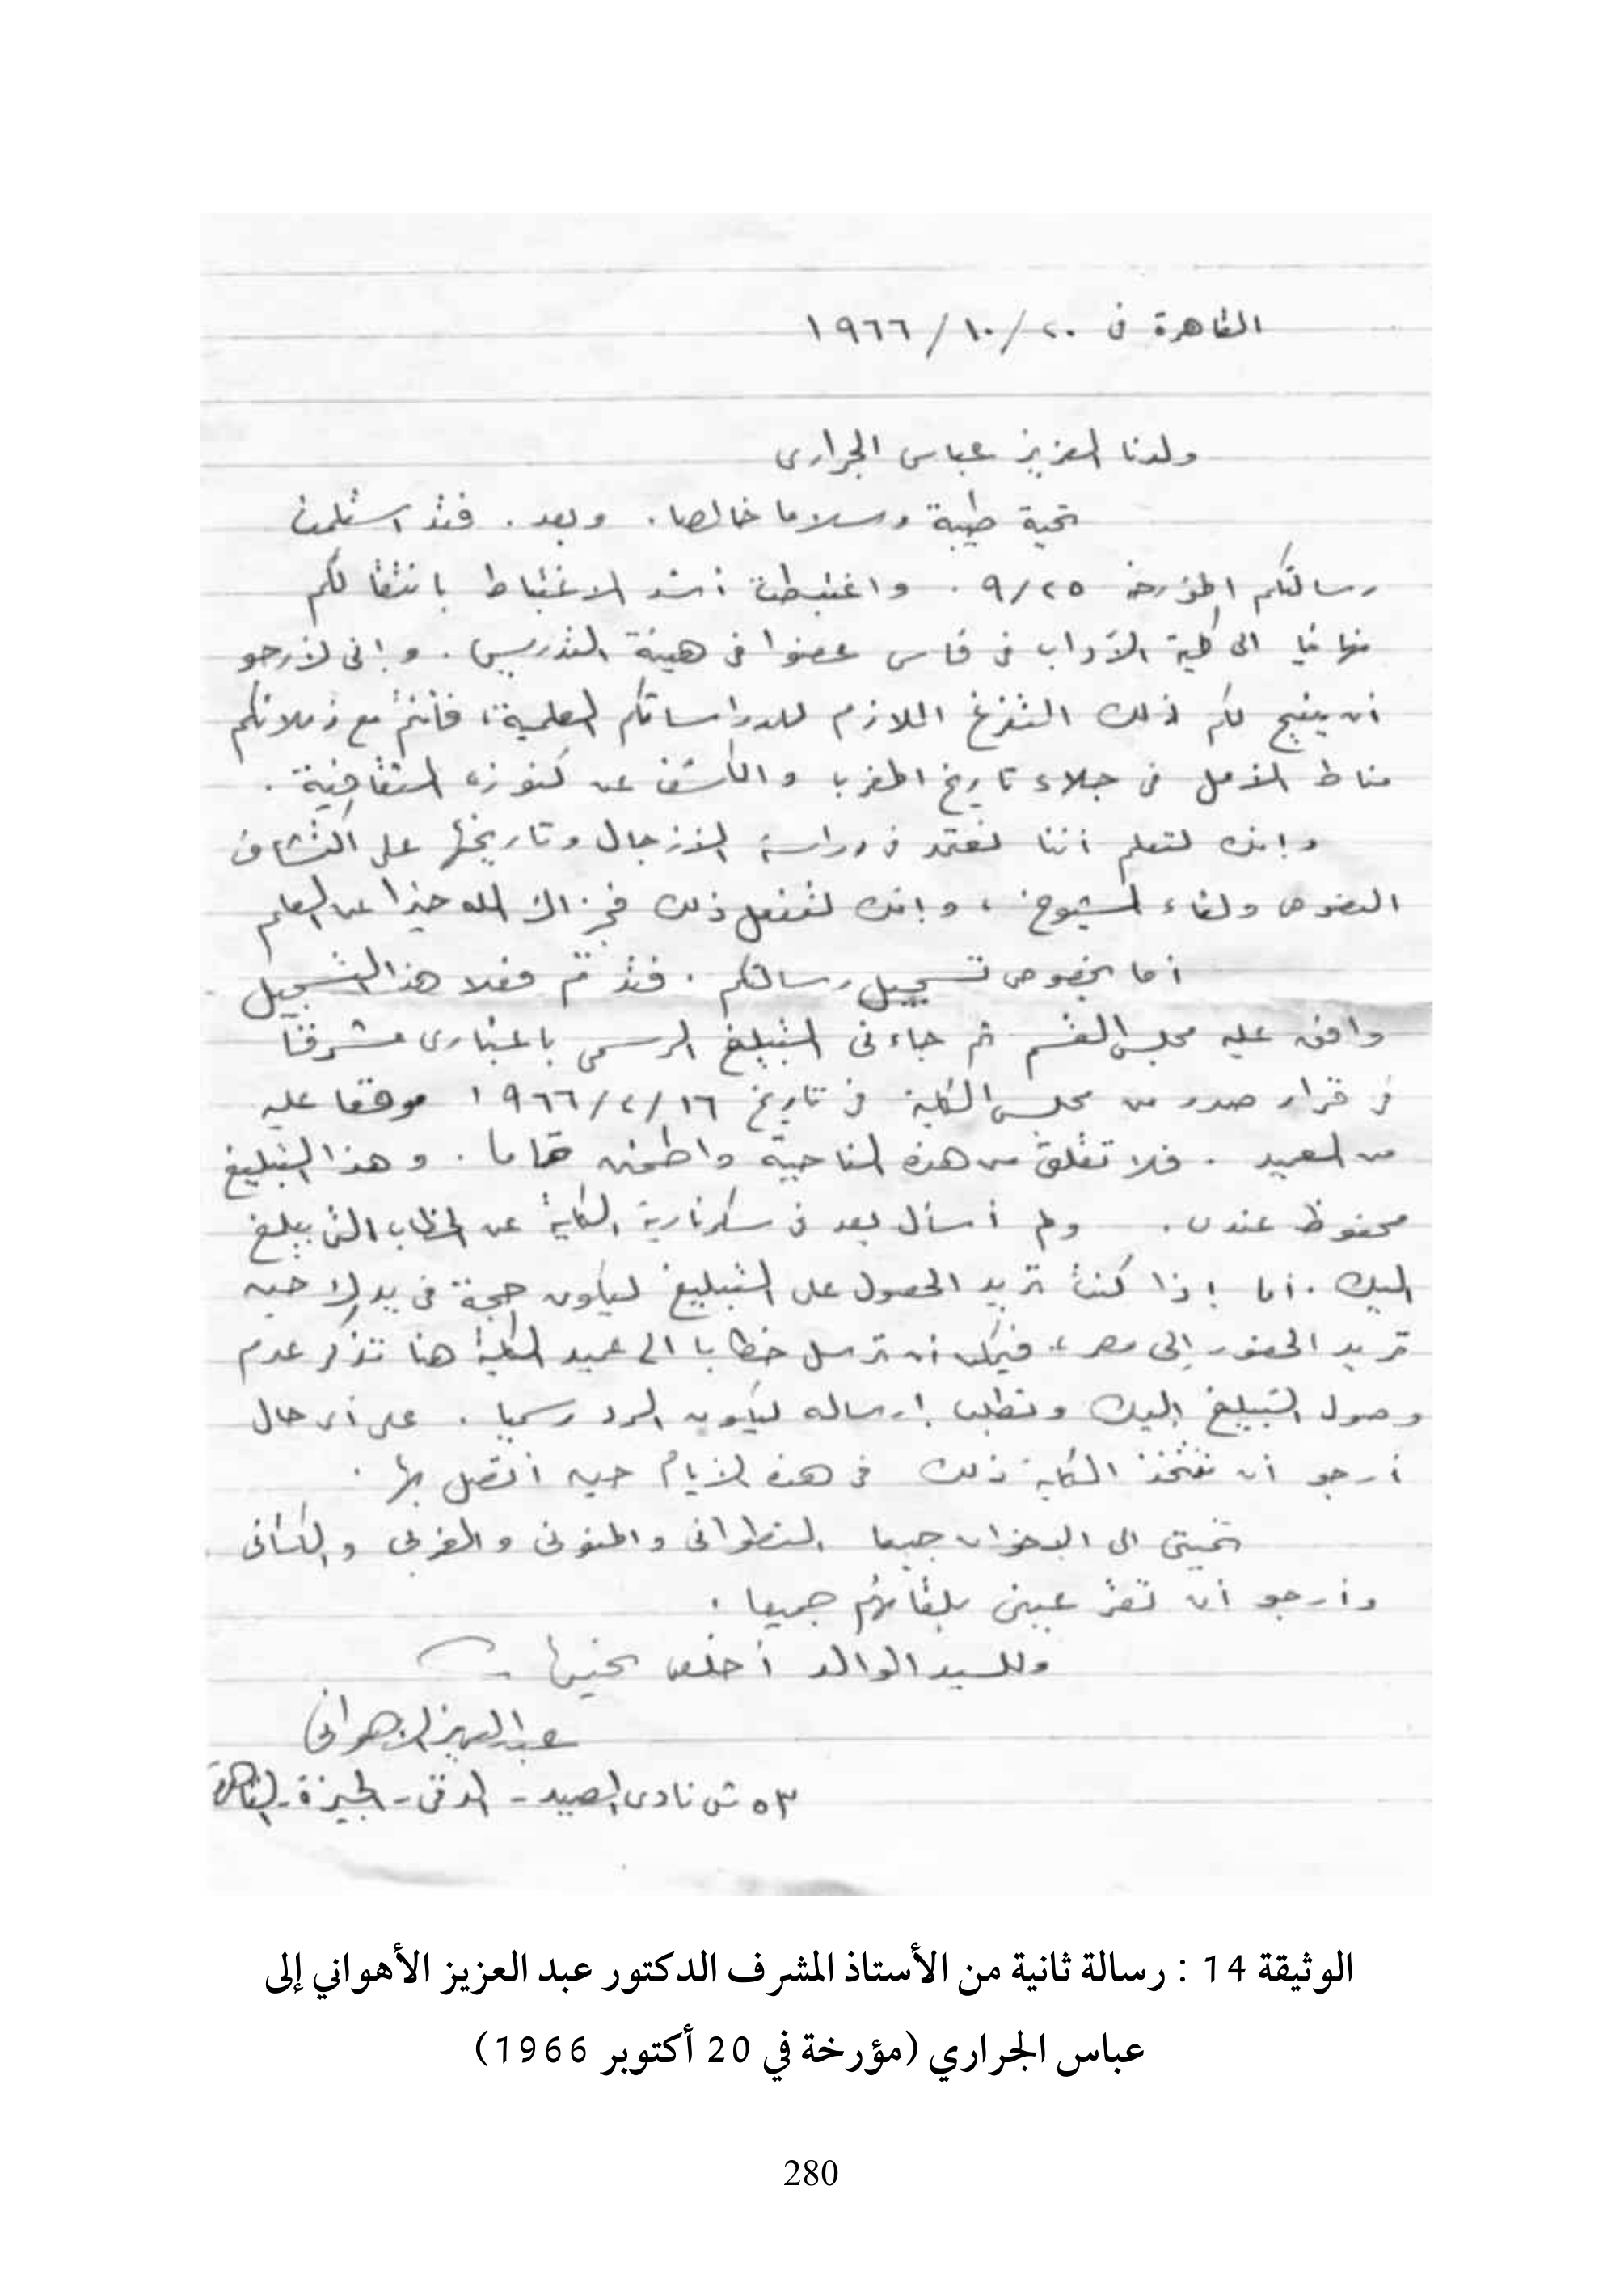 القاهرة في ٢٠/١٠/١٩٦٦
ولدنا العزيز عباس الجرارى
تحية طيبة وسلاما خالصا. وبعد. فقد استلمت
رسالتكم المؤرخة ٩/٢٥. واغتبطت أشد الاغتباط بانتقالكم
نهائيا الى كلية الآداب فى فاس عضوا فى هيئة التدريس. وإنى لأرجو
أن يتيح لكم ذلك التفرغ اللازم للدراساتكم العلمية، فأنتم مع زملائكم
مناط الأمل فى جلاء تاريخ المغرب والكشف عن كنوزه الثقافية.
وإنك لتعلم أننا نعتمد فى دراسة الأزجال وتاريخها على اكتشاف
النصوص ولقاء الشيوخ، وإنك لتفعل ذلك فجزاك الله خيرا عن العلم
أما بخصوص تسجيل رسالتكم. فقد تم فعلا هذا التسجيل
وافق عليه مجلس القسم ثم جاءنى التبليغ الرسمى باعتبارى مشرفا
فى قرار صدر من مجلس الكلية فى تاريخ ١٦/٢/١٩٦٦ موقعا عليه
من العميد. فلا تقلق من هذه الناحية واطمئن تماما. وهذا التبليغ
محفوظ عندى. ولم أسأل بعد فى سكرتارية الكلية عن الخطاب الذى يبلغ
اليك. أما إذا كنت تريد الحصول على التبليغ ليكون حجة فى يدك حين
تريد الحضور إلى مصر، فيمكن أن ترسل خطابا الى عميد الكلية هنا تذكر عدم
وصول التبليغ إليك وتطلب إرساله ليكون الرد رسميا. على أى حال
أرجو أن تتخذ الكلية ذلك فى هذه الأيام حين أتصل بها.
تحيتى الى الإخوان جميعا التطوانى والمنونى والمغربى والكتانى
وأرجو أن تقر عينى بلقائهم جميعا.
وللسيد الوالد أخلص تحيتها
عبد العزيز الأهوانى
٥٣ ش نادى الصيد - الدقى - الجيزة - القاهرة
الوثيقة 14 : رسالة ثانية من الأستاذ المشرف الدكتور عبد العزيز الأهواني إلى
عباس الجراري (مؤرخة في 20 أكتوبر 1966)
280